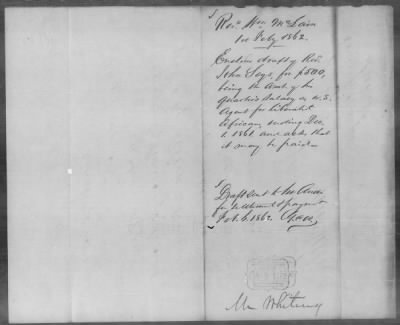 Rev. Wm. McLain
1st Feby 1862.
Enclose draft of Rev.
John Seys, for $500,
being the Amt. of his
quarter's salary as U.S.
Agent for liberated
Africans, ending Dec.
1. 1861 and asks that
it may be paid.
Draft sent to 1st Audr
for settlement & payment
Feb. 6. 1862.
Mr Whiting